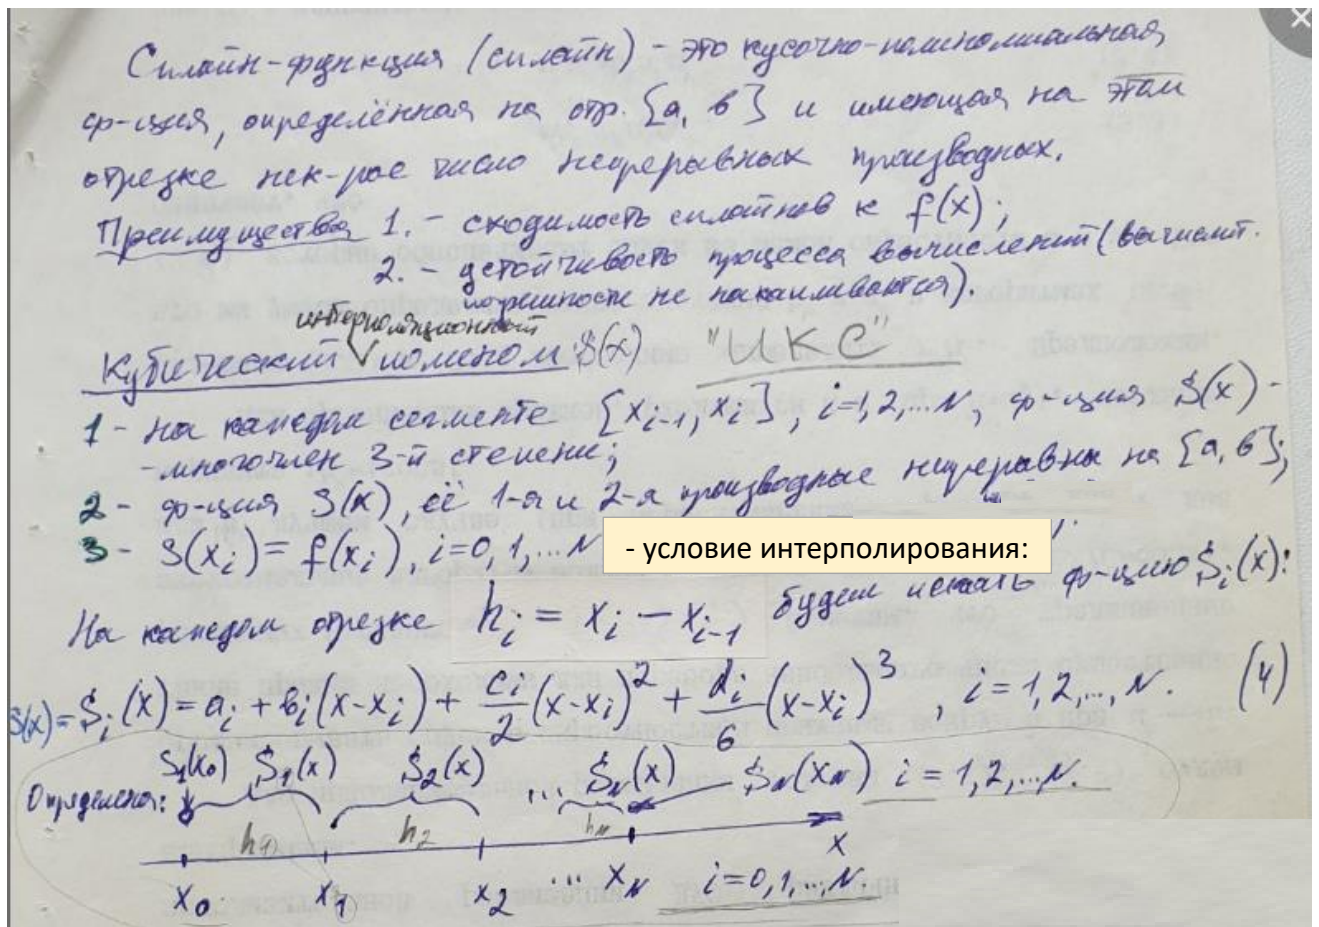 Сплайн-функция (сплайн) - это кусочно-полиномиальная
ф-ция, определённая на отр. [a, b] и имеющая на этом
отрезке нек-рое число непрерывных производных.
Преимущества 1. - сходимость сплайнов к f(x);
2. - устойчивость процесса вычислений (вычислит.
погрешности не накапливаются).
интерполяционный
Кубический √ полином S(x) "ИКС"
1 - на каждом сегменте [x_{i-1}, x_i], i=1,2,...N, ф-ция S(x) -
- многочлен 3-й степени;
2 - ф-ция S(x), её 1-я и 2-я производные непрерывны на [a, b];
3 - S(x_i) = f(x_i), i=0,1,...N - условие интерполирования:
На каждом отрезке h_i = x_i - x_{i-1} будем искать ф-цию S_i(x):
S(x) = S_i(x) = a_i + b_i(x-x_i) + c_i/2 (x-x_i)^2 + d_i/6 (x-x_i)^3, i=1,2,...,N. (4)
S_1(x_0) S_1(x) S_2(x) ... S_N(x) S_N(x_N) i=1,2,...N.
Определена:
h_1 h_2 h_N x
x_0 x_1 x_2 ... x_N i=0,1,...,N.